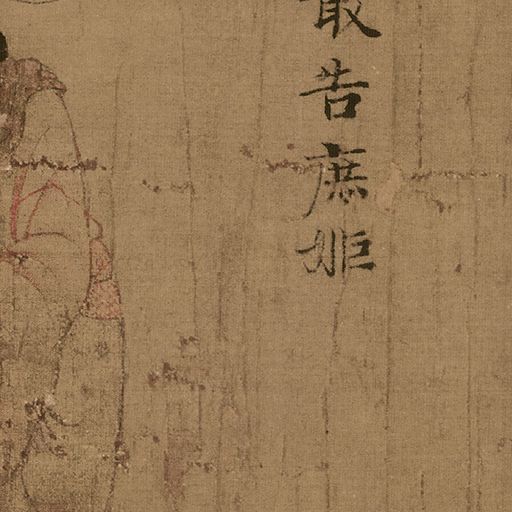 敢告庶姬